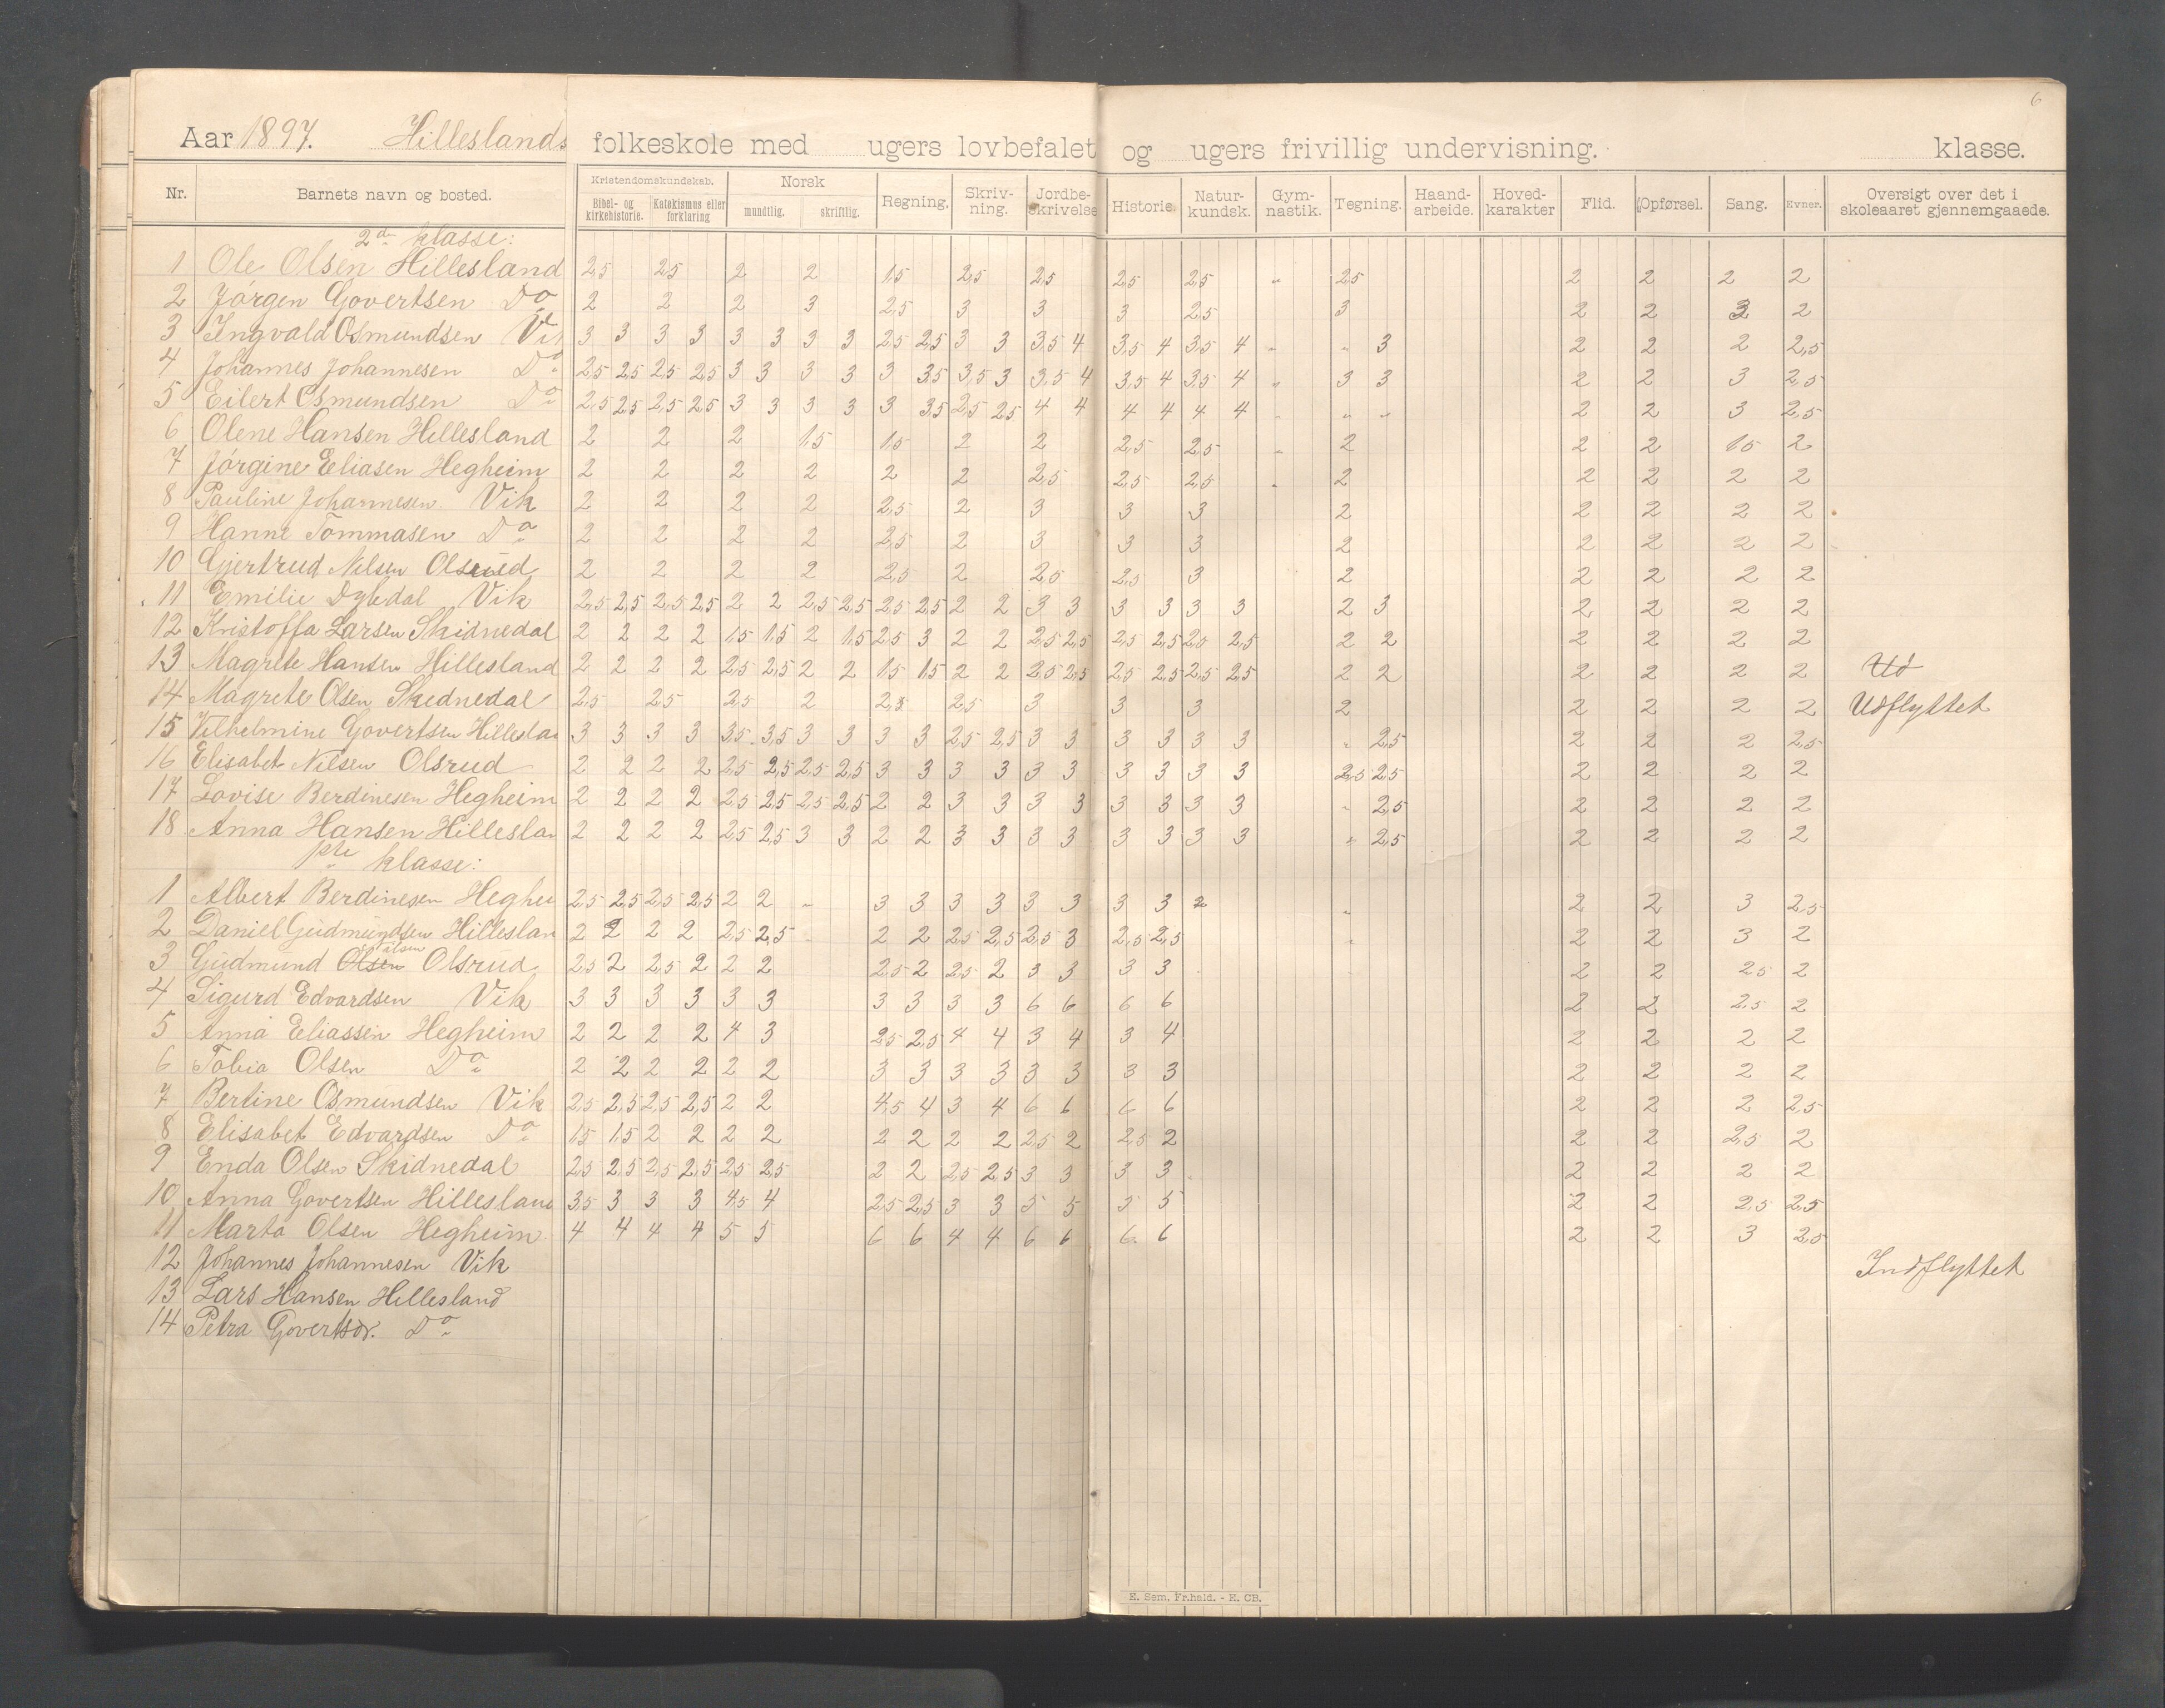 6
Aar 1897. Hilleslands folkeskole med ugers lovbefalet og ugers frivillig undervisning. klasse.
Nr. Barnets navn og bosted. Kristendomskundskab. Bibel- og kirkehistorie. Katekismus eller forklaring Norsk mundtlig. skriftlig. Regning. Skriv-ning. Jordbe-skrivelse Historie. Natur-kundsk. Gym-nastik. Tegning. Haand-arbeide. Hoved-karakter Flid. Opførsel. Sang. Evner. Oversigt over det i skoleaaret gjennemgaaede.
2de klasse:
1 Ole Olsen Hillesland 2,5 2,5 2 2 1,5 2,5 2,5 2,5 2,5 " 2,5 2 2 2 2
2 Jørgen Govertsen Do 2 2 2 3 2,5 3 3 3 2,5 3 2 2 3 2
3 Ingvald Osmundsen Vik 3 3 3 3 3 3 3 3 2,5 2,5 3 3 3,5 4 3,5 4 3,5 4 " " 3 2 2 2 2,5
4 Johannes Johannesen Do 2,5 2,5 2,5 2,5 3 3 3 3 3 3,5 3,5 3 3,5 4 3,5 4 3,5 4 " 3 3 2 2 3 2,5
5 Eilert Osmundsen Do 2,5 2,5 2,5 2,5 3 3 3 3 3 3,5 2,5 2,5 4 4 4 4 4 4 " " " 2 2 3 2,5
6 Olene Hansen Hillesland 2 2 2 1,5 1,5 2 2 2,5 2,5 " 2 2 2 1,5 2
7 Jørgine Eliasen Hegheim 2 2 2 2 2 2 2,5 2,5 2,5 " 2 2 2 2 2
8 Pauline Johannesen Vik 2 2 2 2 2,5 2 3 3 3 2 2 2 2 2
9 Hanne Tommasen Do 2 2 2 2 2,5 2 3 3 3 2 2 2 2 2
10 Gjertrud Nilsen Olsrud 2 2 2 2 2,5 2 2,5 2,5 3 2 2 2 2 2
11 Emilie Dybdal Vik 2,5 2,5 2,5 2,5 2 2 2,5 2,5 2,5 2,5 2 2 3 3 3 3 3 3 2 3 2 2 2 2
12 Kristoffa Larsen Skidnedal 2 2 2 2 1,5 1,5 2 1,5 2,5 3 2 2 2,5 2,5 2,5 2,5 2,5 2,5 2 2 2 2 2 2
13 Magrete Hansen Hillesland 2 2 2 2 2,5 2,5 2 2 1,5 1,5 2 2 2,5 2,5 2,5 2,5 2,5 2,5 2 2 2 2 2 2 Ud
14 Magrete Olsen Skidnedal 2,5 2,5 2,5 2 2,5 2,5 3 3 3 2 2 2 2 2 Udflyttet
15 Vilhelmine Govertsen Hilleslan 3 3 3 3 3,5 3,5 3 3 3 3 2,5 2,5 3 3 3 3 3 3 " 2,5 2 2 2 2,5
16 Elisabet Nilsen Olsrud 2 2 2 2 2,5 2,5 2,5 2,5 3 3 3 3 3 3 3 3 3 3 2,5 2,5 2 2 2 2
17 Lovise Berdinesen Hegheim 2 2 2 2 2,5 2,5 2,5 2,5 2 2 3 3 3 3 3 3 3 3 " 2,5 2 2 2 2
18 Anna Hansen Hilleslan 2 2 2 2 2,5 2,5 3 3 2 2 3 3 3 3 3 3 3 3 " 2,5 2 2 2 2
1ste klasse:
1 Albert Berdinesen Heghei 2,5 2,5 2,5 2,5 2 2 " 3 3 3 3 3 3 3 3 " " 2 2 3 2,5
2 Daniel Gudmundsen Hilleslan 2 2 2 2 2,5 2,5 2 2 2,5 2,5 2,5 3 2,5 2,5 " 2 2 3 2
3 Gudmund Olsen Nilsen Olsrud 2,5 2 2,5 2 2 2 2,5 2 2,5 2 3 3 3 3 2 2 2,5 2
4 Sigurd Edvardsen Vik 3 3 3 3 3 3 3 3 3 3 6 6 6 6 2 2 2,5 2
5 Anna Eliassen Hegheim 2 2 2 2 4 3 2,5 2,5 4 4 3 4 3 4 2 2 2 2
6 Tobia Olsen Do 2 2 2 2 2 2 3 3 3 3 3 3 3 3 2 2 2 2
7 Bertine Osmundsen Vik 2,5 2,5 2,5 2,5 2 2 4,5 4 3 4 6 6 6 6 2 2 2 2,5
8 Elisabet Edvardsen Do 1,5 1,5 2 2 2 2 2 2 2 2 2,5 2 2,5 2 2 2 2,5 2
9 Enda Olsen Skidnedal 2,5 2,5 2,5 2,5 2,5 2,5 2 2 2,5 2,5 3 3 3 3 2 2 2 2
10 Anna Govertsen Hillesland 3,5 3 3 3 4,5 4 2,5 2,5 3 3 5 5 5 5 2 2 2,5 2,5
11 Marta Olsen Hegheim 4 4 4 4 5 5 6 6 4 4 6 6 6 6 2 2 3 2,5
12 Johannes Johannesen Vik Indflyttet
13 Lars Hansen Hillesland
14 Petra Govertsdr. Do
E. Sem, Fr.hald. - E. CB.